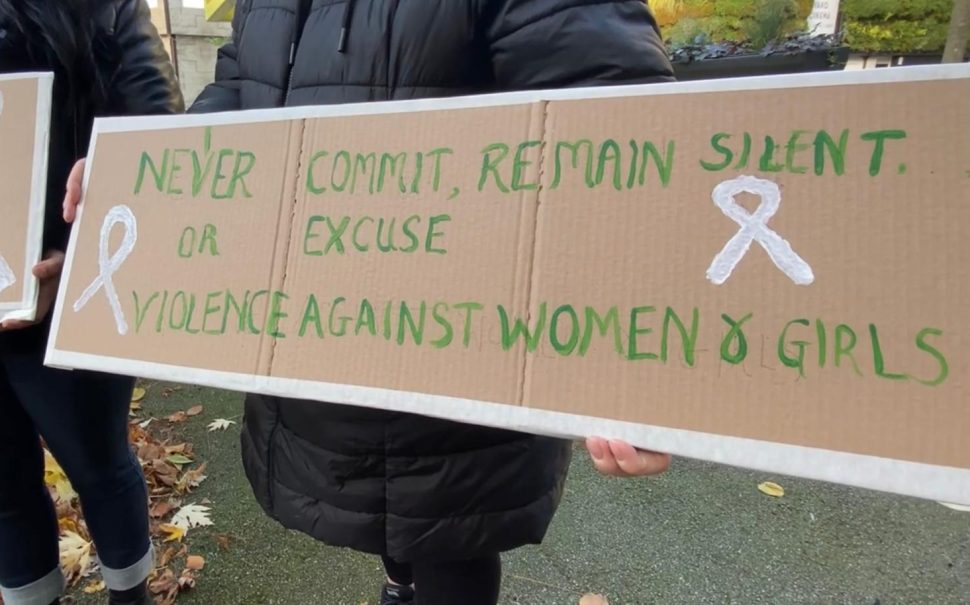 NEVER COMMIT, REMAIN SILENT.
OR EXCUSE
VIOLENCE AGAINST WOMEN & GIRLS